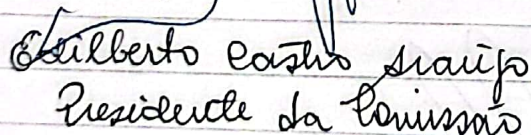 Edilberto Castro Araújo
Presidente da Comissão